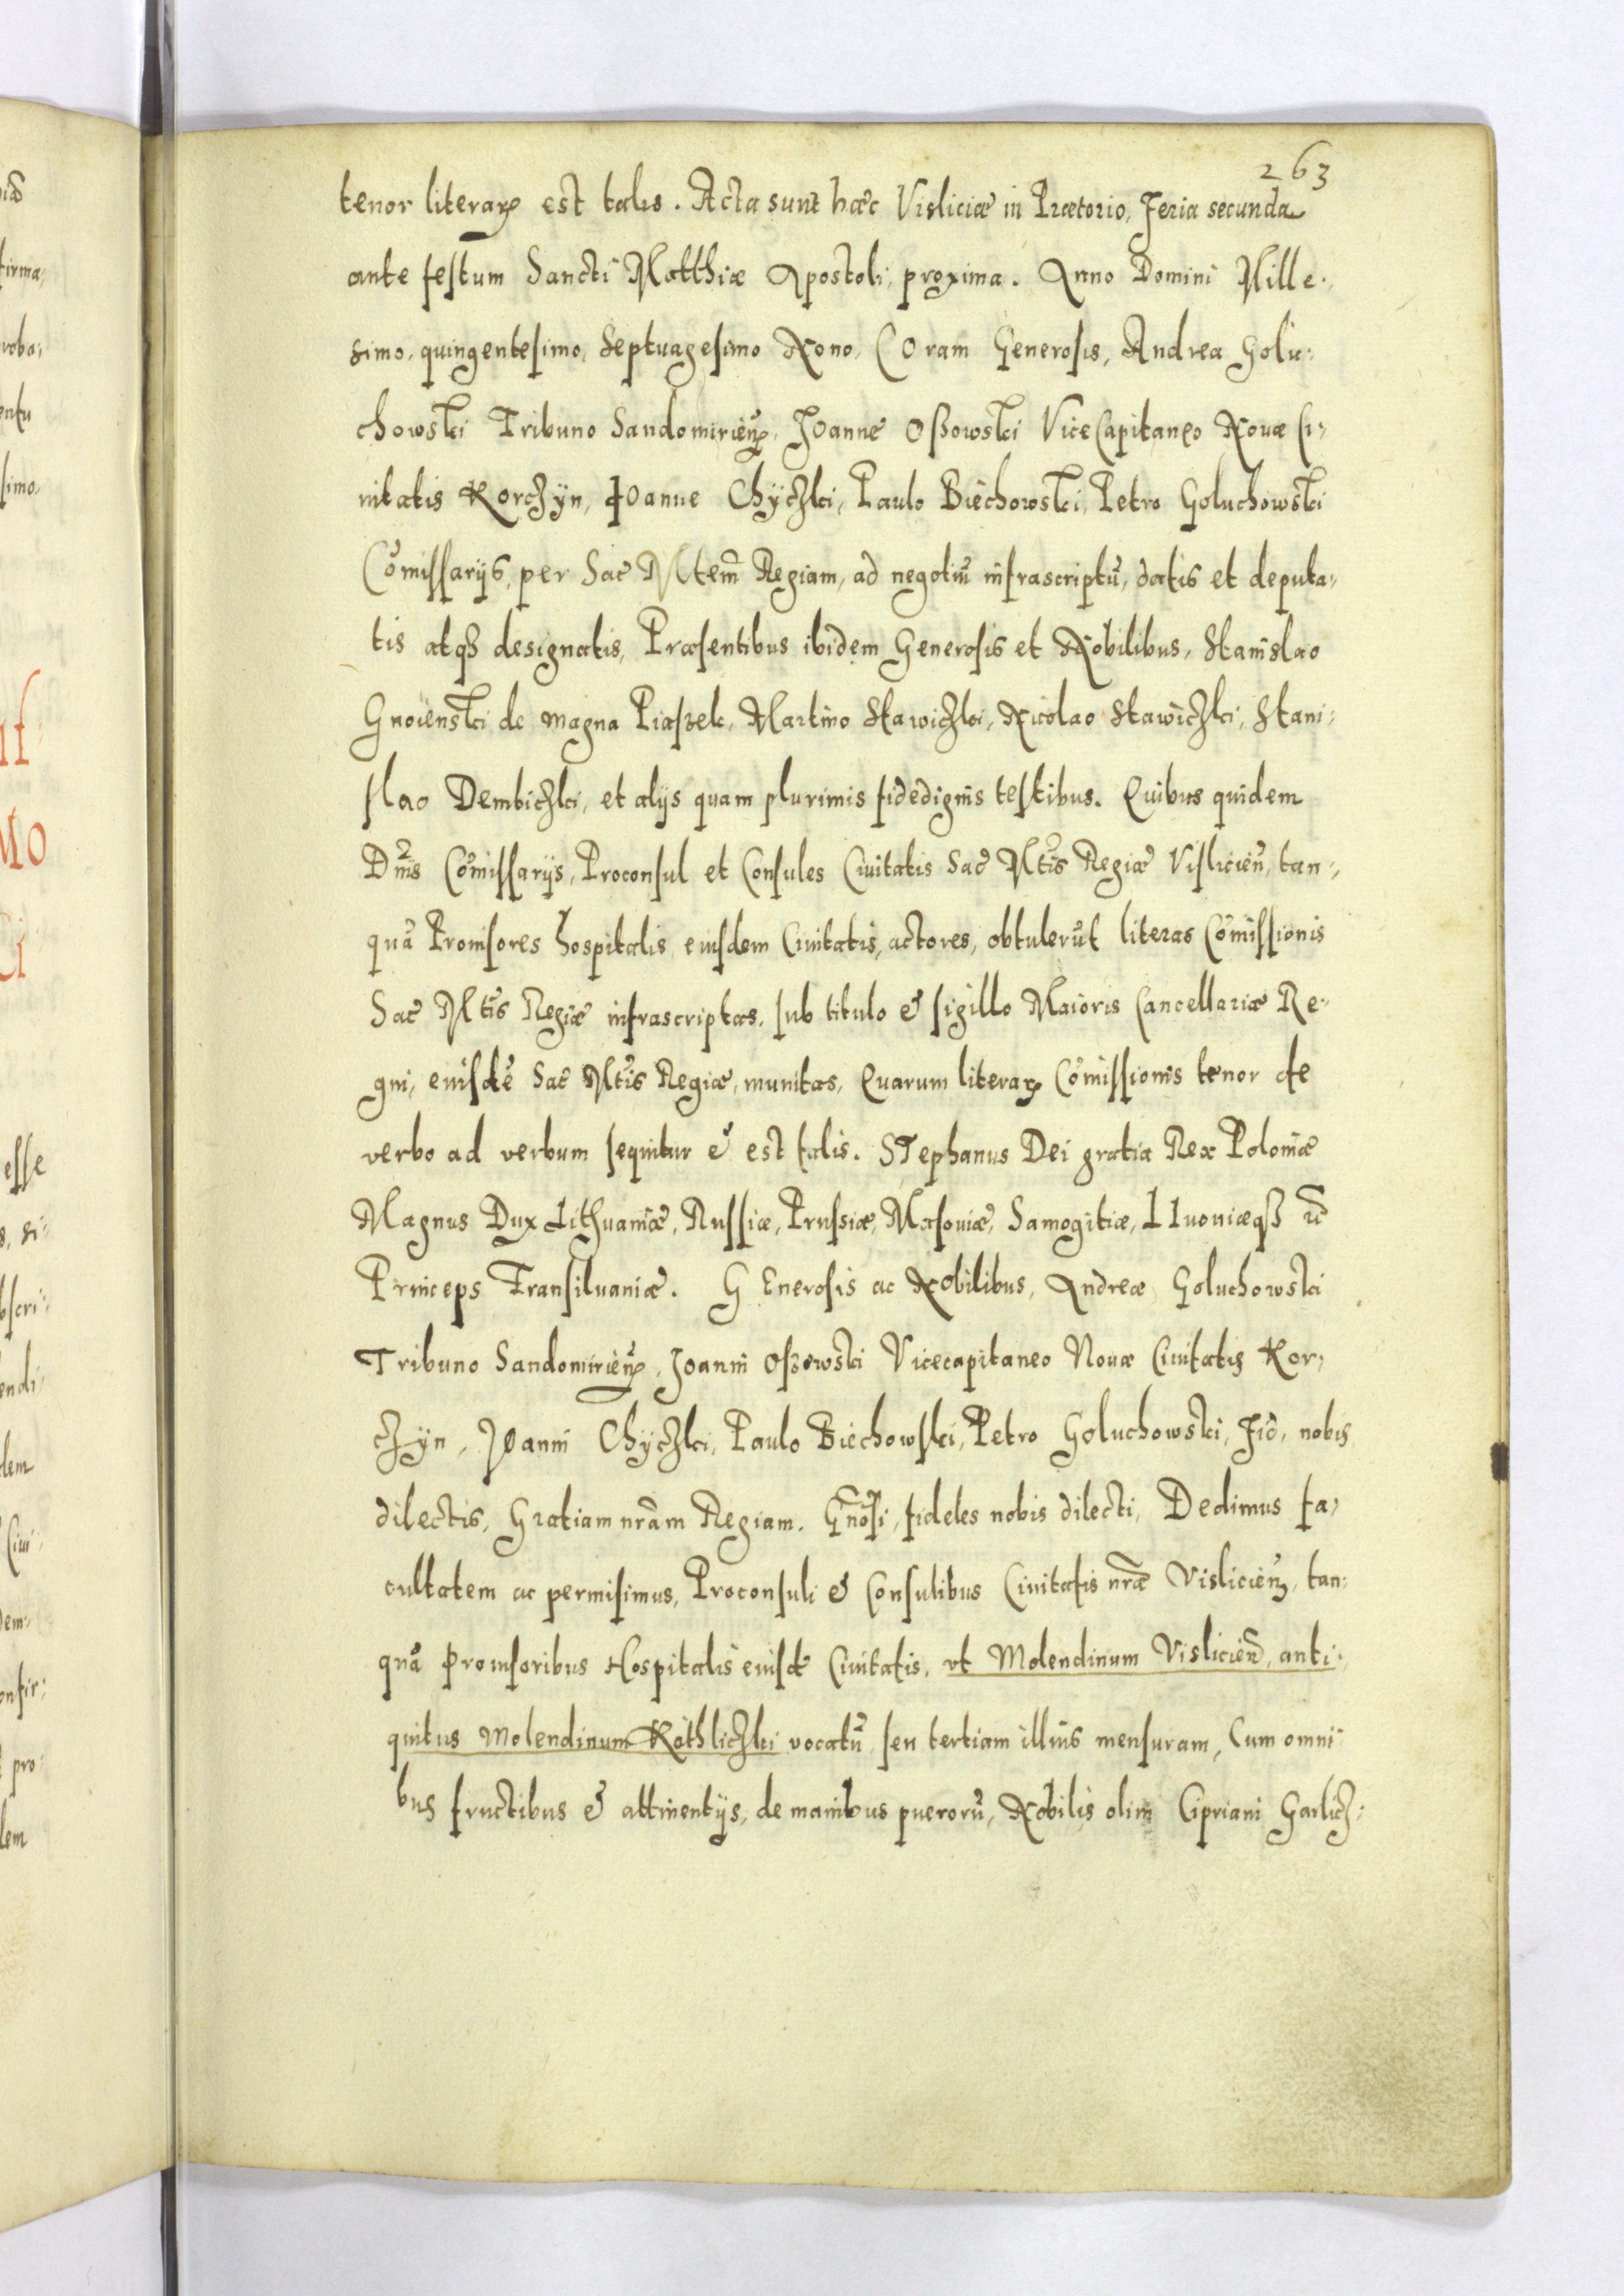 263
tenor literarꝝ est talis. Acta sunt hæc Visliciæ in Prætorio, Feria secunda
ante festum Sancti Matthiæ Apostoli, proxima. Anno Domini Mille-
simo, quingentesimo, Septuagesimo Nono, COram Generosis, Andrea Golu-
chowski Tribuno Sandomirieñ, JOanne Oßowski ViceCapitaneo Nouæ Ci-
uitatis Korczyn, JOanne Chyczki, Paulo Biechowski, Petro Goluchowski
Cōmissarijs, per Sac̄ Mtem̄ Regiam, ad negotiū infrascriptū, datis et deputa-
tis atqꝫ designatis, Præsentibus ibidem Generosis et Nobilibus, Stanislao
Gnoienski de magna Piaßek, Martino Stawiczki, Nicolao Stawiczki, Stani-
slao Dembiczki, et alijs quam plurimis fidedignis testibus. Quibus quidem
Dn̄is Cōmissarijs, Proconsul et Consules Ciuitatis Sac̄ Mtis̄ Regiæ Vislicień, tan-
quā Prouisores hospitalis eiusdem Ciuitatis, actores, obtulerūt literas Cōmissionis
Sac̄ Mtis̄ Regiæ infrascriptas, sub titulo & sigillo Maioris Cancellariæ Re-
gni, eiusdē Sac̄ Mtis̄ Regiæ, munitas, Quarum literaꝝ Cōmissionis tenor de
verbo ad verbum sequitur & est talis. STephanus Dei gratia Rex Poloniæ
Magnus Dux Lithuaniæ, Russiæ, Prussiæ, Masouiæ, Samogitiæ, LIuoniæqꝫ
Princeps Transiluaniæ. GEnerosis ac Nobilibus, Andreæ Goluchowski
Tribuno Sandomirieñ, Joanni Oßowski Vicecapitaneo Nouæ Ciuitatis Kor-
czyn, JOanni Chyczki, Paulo Biechowski, Petro Goluchowski, Fid, nobis
dilectis, Gratiam nr̄am Regiam. Gn̄osi, fideles nobis dilecti, Dedimus fa-
cultatem ac permisimus, Proconsuli & Consulibus Ciuitatis nr̄æ Vislicień, tan-
quā Prouisoribus Hospitalis eiusdē Ciuitatis, vt Molendinum Vislicień, anti-
quitus Molendinum Rathliczki vocatū seu tertiam illius mensuram, Cum omni-
bus fructibus & attinentijs, de manibus puerorū, Nobilis olim Cipriani Garlicz-